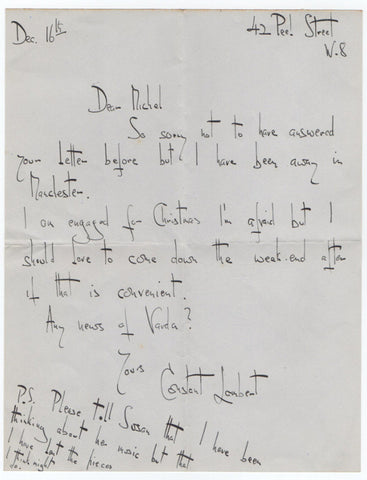 Dec. 16th
42 Peel Street
W.8
Dear Michel
So sorry not to have answered
your letter before but I have been away in
Manchester.
I am engaged for Christmas I'm afraid but I
should love to come down the week-end after
if that is convenient.
Any news of Varda?
Yours
Constant Lambert
P.S. Please tell Susan that I have been
thinking about her music but that
I have lent the pieces
I think might
do.